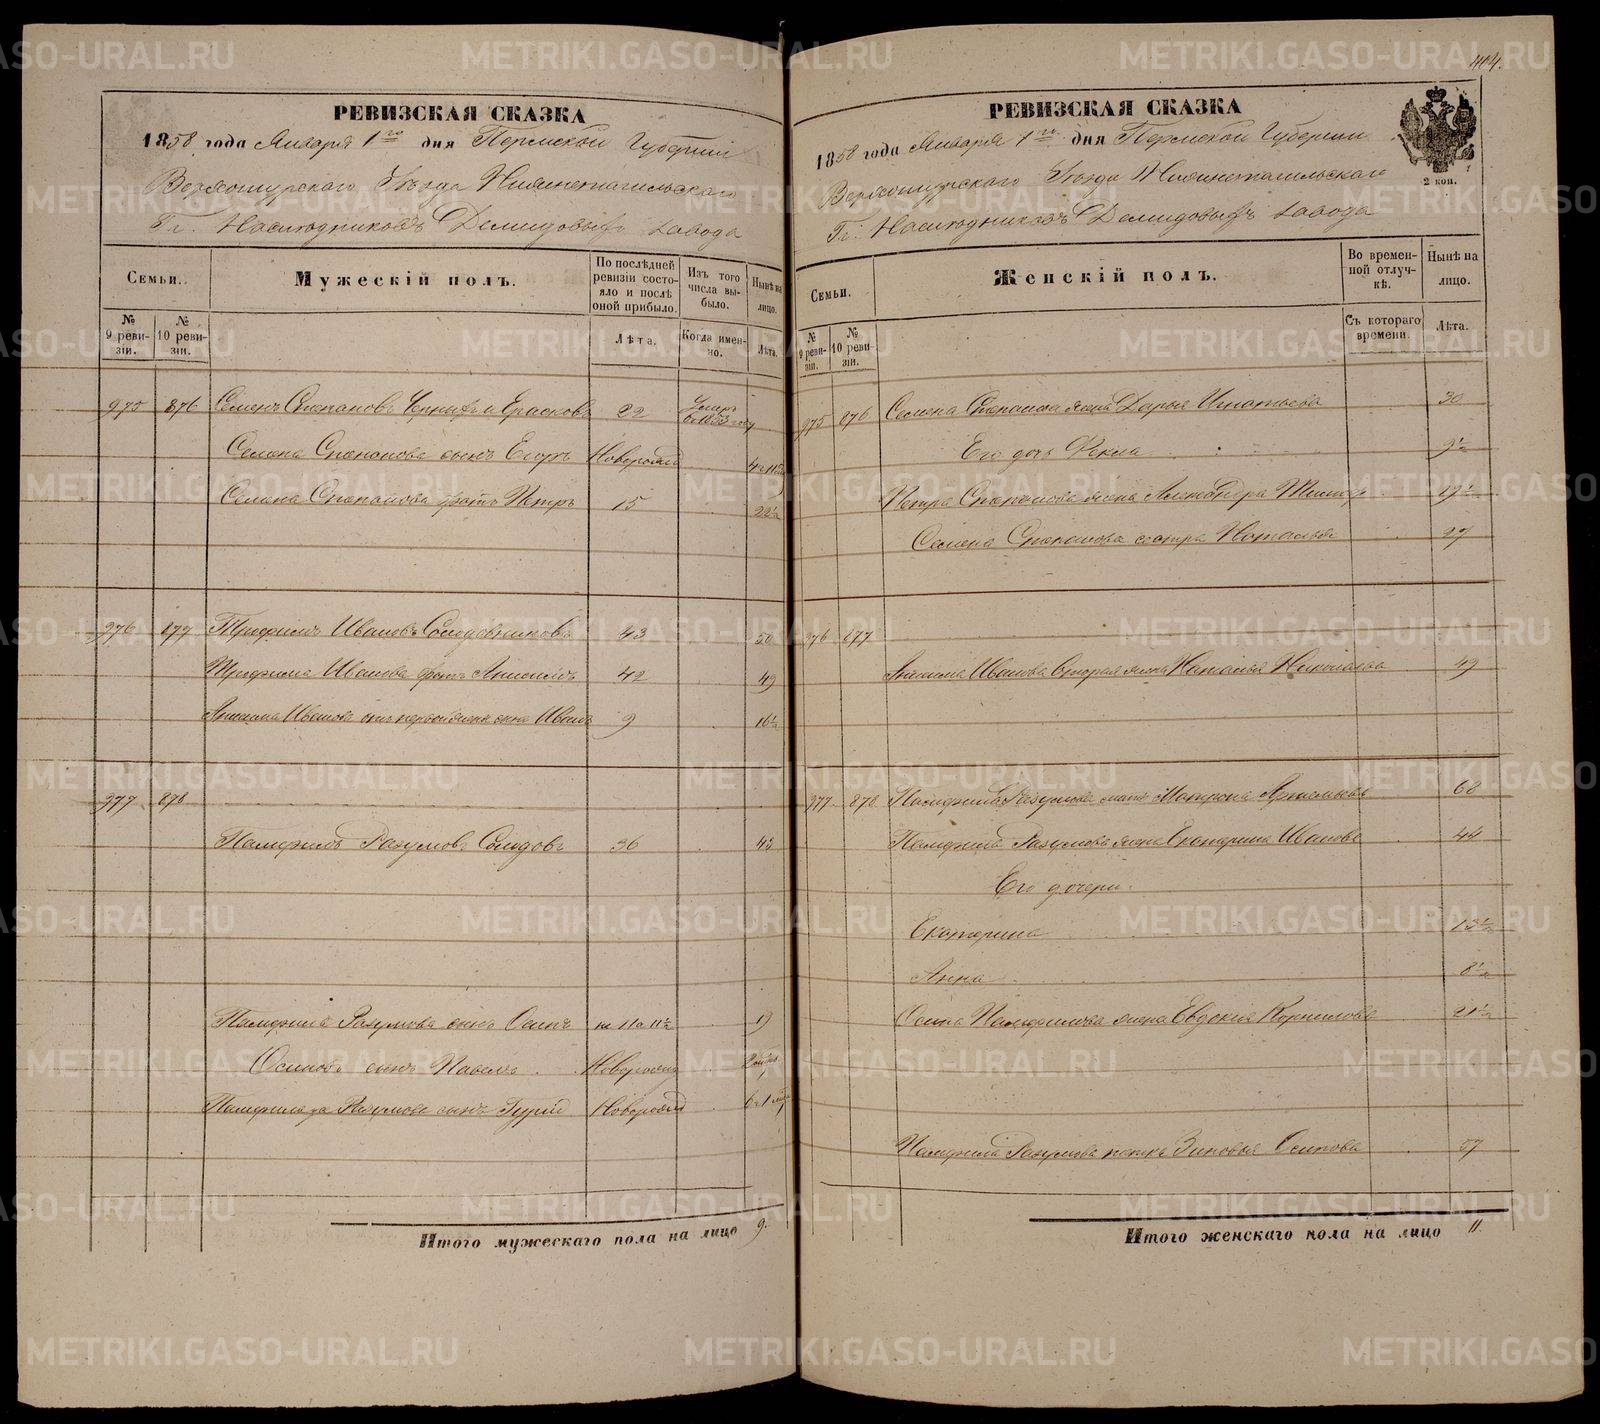 404.
РЕВИЗСКАЯ СКАЗКА
1858 года Января 1го дня Пермской Губернии
Верхотурского Уезда Нижнетагильскаго
Гг. Наследниковъ Демидовыхъ завода
Семьи.
Мужескій полъ.
По послѣдней ревизіи состояло и послѣ оной прибыло.
Изъ того числа выбыло.
Нынѣ на лицо.
№ 9 ревизіи.
№ 10 ревизіи.
Лѣта.
Когда именно.
Лѣта.
975 876 Семенъ Степановъ Черныхъ и Ерасковъ 22 Умеръ въ 1853 году
Семена Степанова сынъ Егоръ Новорожд
Семена Степанова братъ Петръ 15 22½
976 877 Трофимъ Ивановъ Солодовниковъ 43 50
Трофима Иванова братъ 42 49
Иванъ 9 16½
977 878
Памфилъ Разумовъ Солодовъ 36 43
Памфила Разумова сынъ Осипъ 11½ 19
Осиповъ сынъ Павелъ Новорожд
Памфила Разумова сынъ Гурій Новорожд
Итого мужескаго пола на лицо 9.
РЕВИЗСКАЯ СКАЗКА
1858 года Января 1го дня Пермской Губернии
Верхотурскаго Уезда Нижнетагильскаго
Гг. Наследниковъ Демидовыхъ завода
2 коп.
Семьи.
Женскій полъ.
Во временной отлучкѣ.
Нынѣ на лицо.
№ 9 ревизіи.
№ 10 ревизіи.
Съ котораго времени.
Лѣта.
975 876 Семена Степанова жена Дарья Игнатьева 30
Его дочь Фекла
Петра Степанова жена Александра 19½
Семена Степанова сестра Наталья 27
976 877
Иванова вторая жена Наталья Николаева 49
977 878 Памфила Разумова мать Матрона 68
Памфила Разумова жена Екатерина Иванова 44
Его дочери.
Екатерина
Анна 8½
Осипа Памфилова жена Евдокія Корнилова 21½
Памфила Разумова тетка Зиновья Осипова 57
Итого женскаго пола на лицо 11.
METRIKI.GASO-URAL.RU